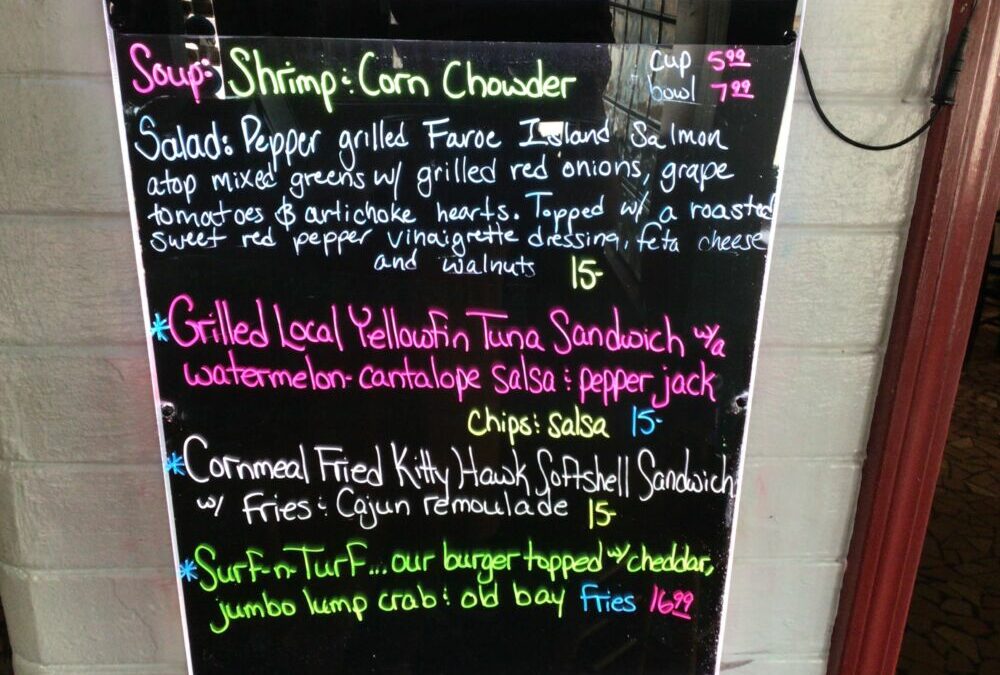 Soup: Shrimp & Corn Chowder cup 5.99
bowl 7.99
Salad: Pepper grilled Faroe Island Salmon
atop mixed greens w/ grilled red onions, grape
tomatoes & artichoke hearts. Topped w/ a roasted
sweet red pepper vinaigrette dressing, feta cheese
and walnuts 15-
*Grilled Local Yellowfin Tuna Sandwich w/a
watermelon-cantalope salsa & pepper jack
chips & salsa 15-
*Cornmeal Fried Kitty Hawk Softshell Sandwich
w/ Fries & Cajun remoulade 15-
*Surf-n-Turf...our burger topped w/ cheddar,
jumbo lump crab & old bay Fries 16.99